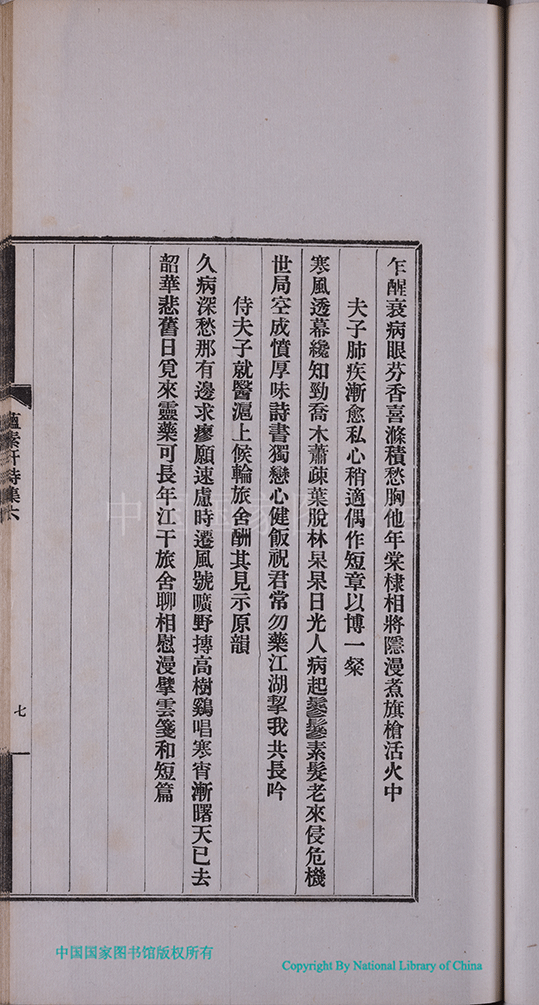 乍醒衰病眼芬香喜滌積愁胸他年棠棣相將隱漫煮旗槍活火中
夫子肺疾漸愈私心稍適偶作短章以博一粲
寒風透幕纔知勁喬木蕭疎葉脫林杲杲日光人病起鬖鬖素髮老來侵危機
世局空成憤厚味詩書獨戀心健飯祝君常勿藥江湖挈我共長吟
侍夫子就醫滬上候輪旅舍酬其見示原韻
久病深愁那有邊求瘳願速慮時遷風號曠野摶高樹鷄唱寒宵漸曙天已去
韶華悲舊日覓來靈藥可長年江干旅舍聊相慰漫擘雲箋和短篇
素軒詩集六
七
中国国家图书馆
中国国家图书馆版权所有
Copyright By National Library of China